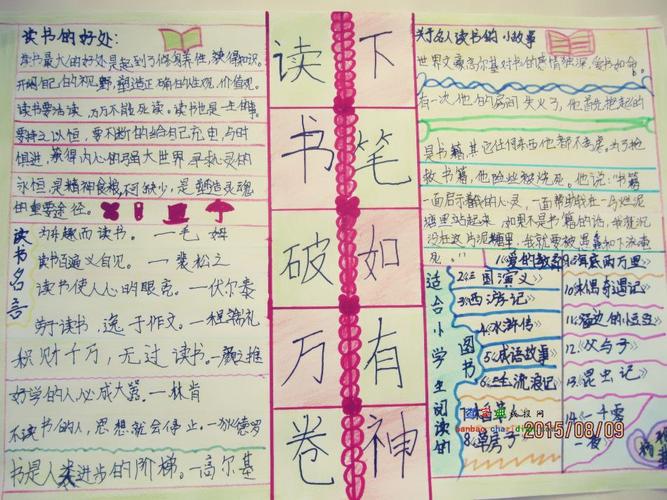 读书的好处:
读书最大的好处是起到了修身养性,获得知识。
开阔自己的视野,塑造正确的人生观,价值观。
读书要活读,万万不能死读。读书也是一生的事,
要持之以恒,要不断的给自己充电,与时
俱进,获得内心的强大世界寻求心灵的
永恒是精神食粮,不可缺少,是塑造灵魂
的重要途径。
读书名言
为乐趣而读书。—毛姆
读书百遍,义自见。—裴松之
读书使人心的眼亮。—伏尔泰
劳于读书,逸于作文。—程端礼
积财千万,无过读书。—颜之推
好学的人必成大器。—林肯
不读书的人,思想就会停止。—狄德罗
书是人类进步的阶梯。—高尔基
读书破万卷
下笔如有神
关于名人读书的小故事
世界文豪高尔基对书的感情独深,爱书如命。
有一次,他的房间失火了,他首先抱起的
是书籍,其它任何东西他都不考虑。为了抢
救书籍,他险些被烧死。他说:"书籍
一面启示着我的人心灵,一面帮助我在一片烂泥
塘里站起来,如果不是书籍的话,我就沉
没在这片泥塘里,我就要被
适合小学生阅读的
图书
1.《爱的教育》
2.《三国演义》
3.《西游记》
4.《水浒传》
5.《成语故事》
6.《三毛流浪记》
8.《草房子》
9.《海底两万里》
10.《木偶奇遇记》
11.《窗边的小豆豆》
12.《父与子》
13.《昆虫记》
14.《一千零
一夜》
2015/08/09